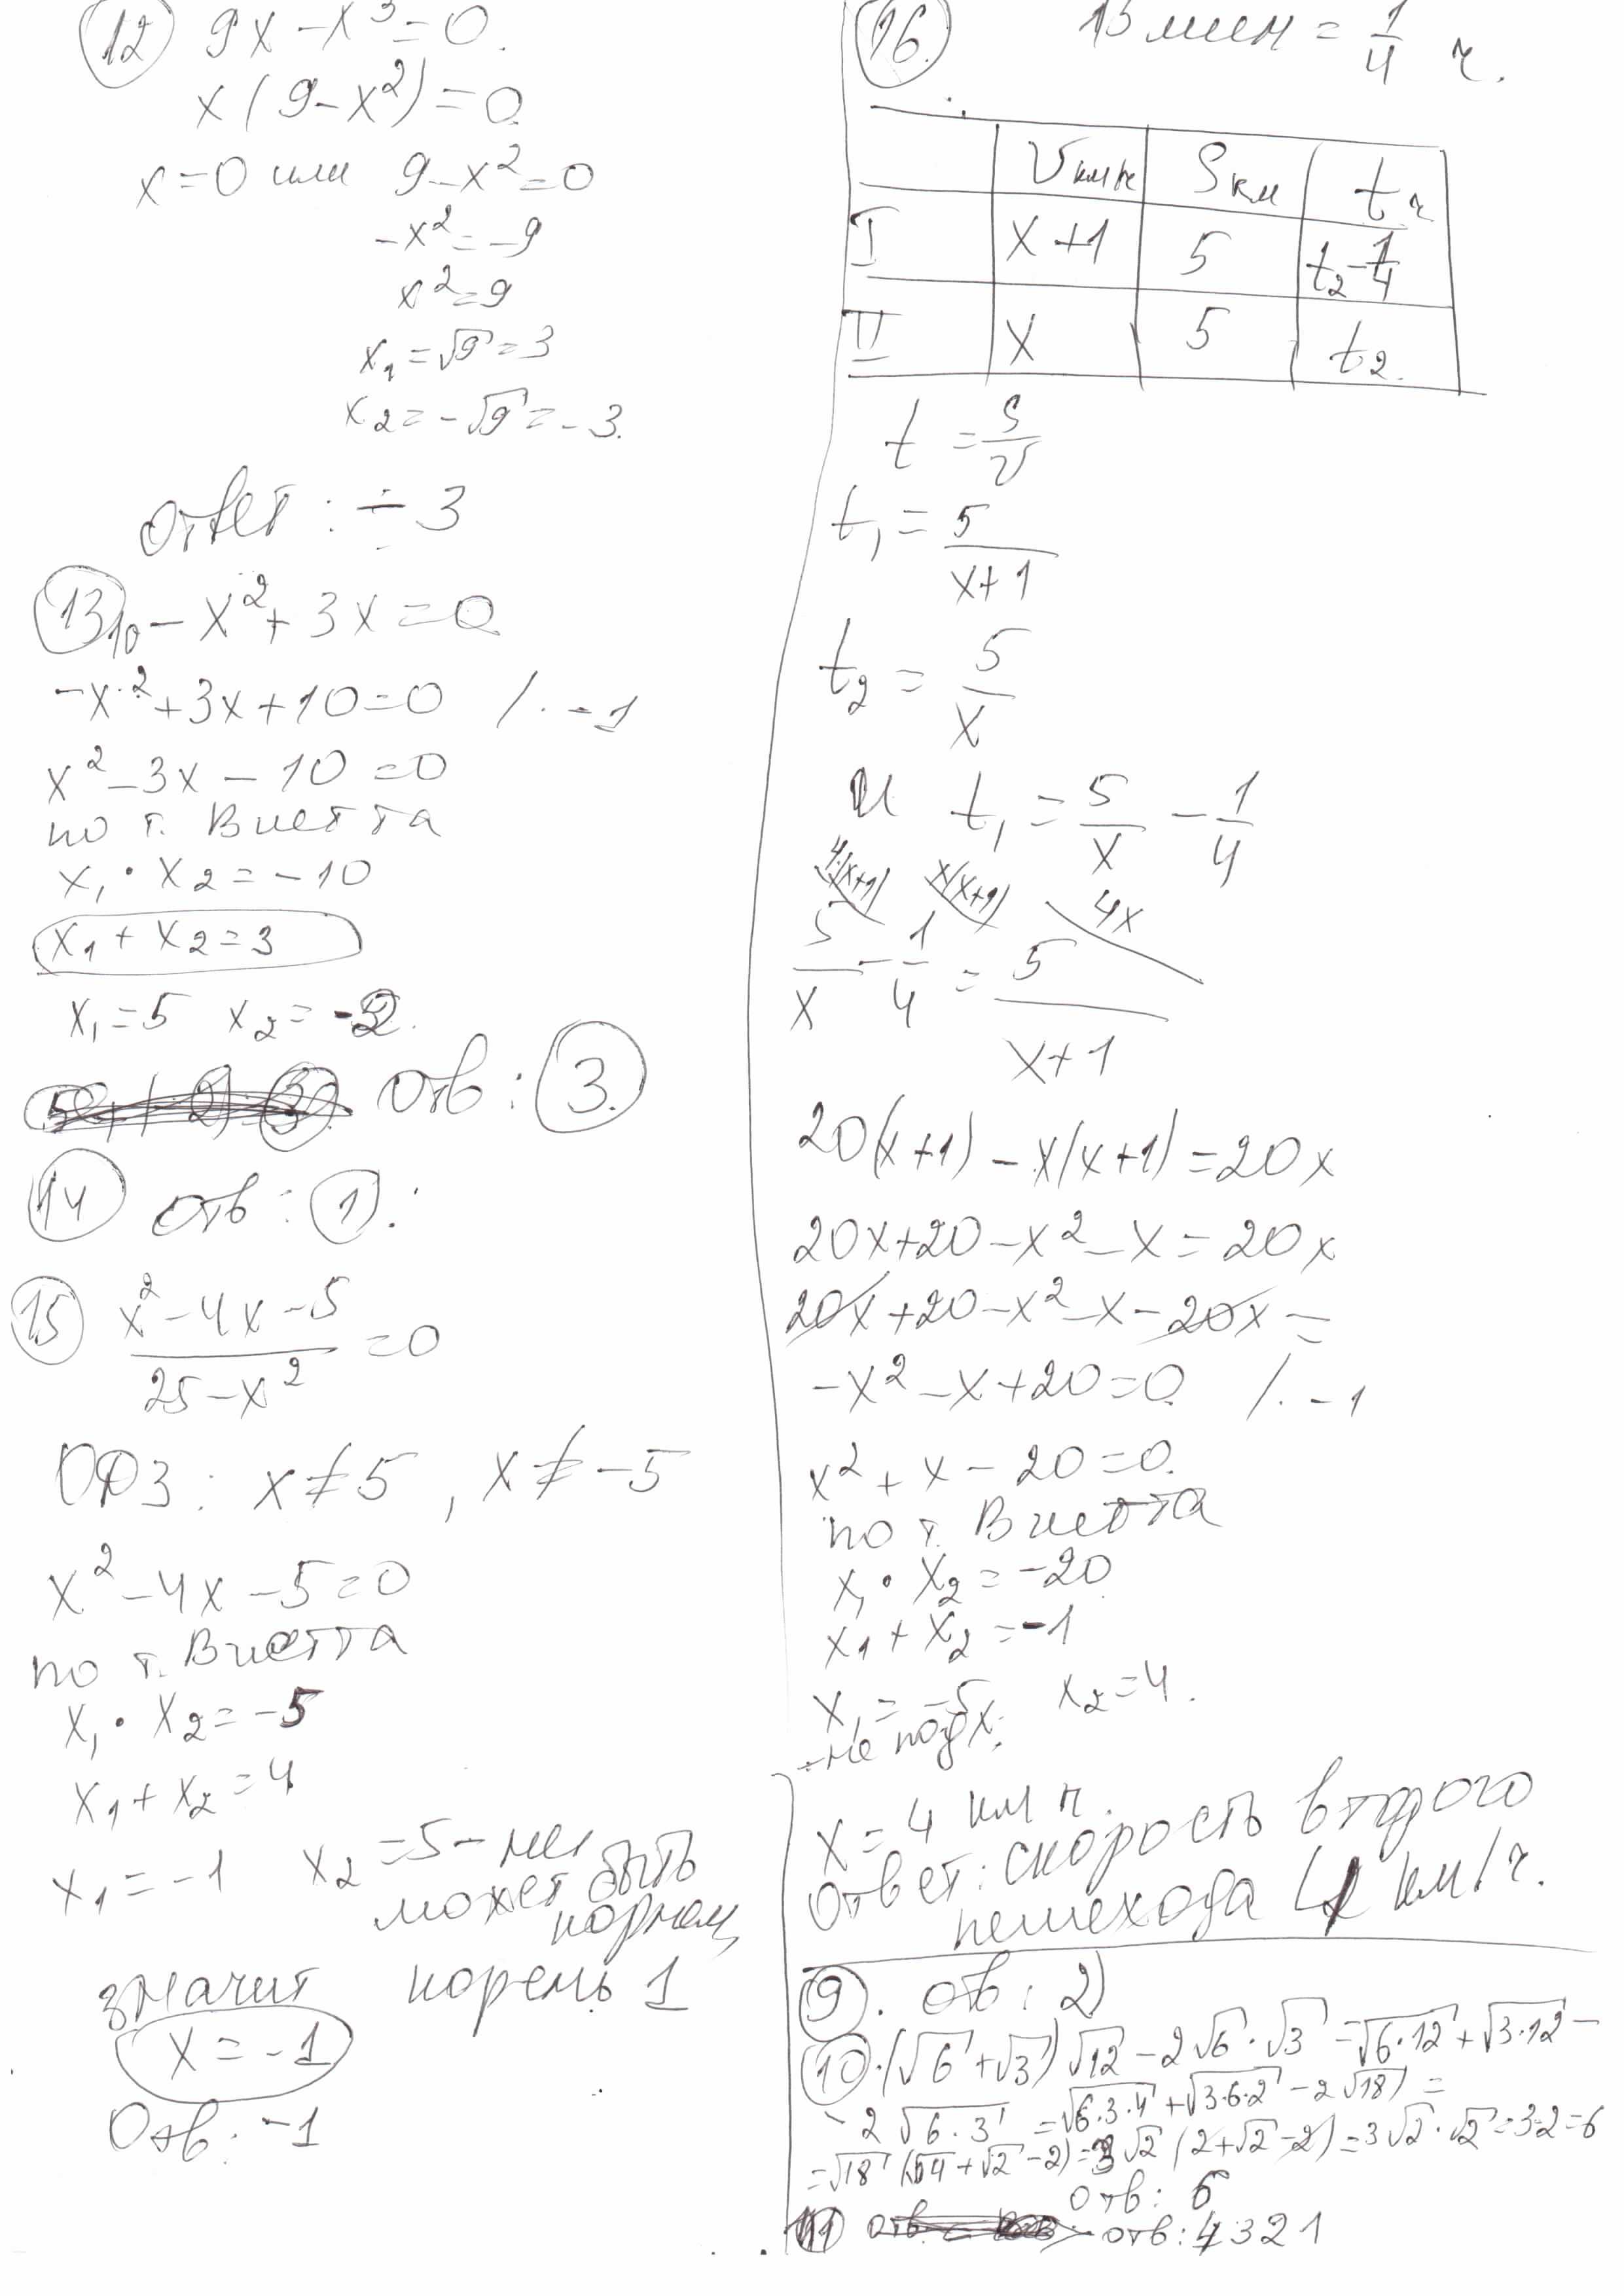 12 9x - x³ = 0.
x(9 - x²) = 0
x = 0 или 9 - x² = 0
-x² = -9
x² = 9
x₁ = √9 = 3
x₂ = -√9 = -3.
Ответ: ÷ 3
13 10 - x² + 3x = 0
-x² + 3x + 10 = 0 /· -1
x² - 3x - 10 = 0
по т. Виетта
x₁ · x₂ = -10
x₁ + x₂ = 3
x₁ = 5 x₂ = -2.
Отв: 3.
14 Отв: 1.
15 (x² - 4x - 5)/(25 - x²) = 0
ОДЗ: x ≠ 5, x ≠ -5
x² - 4x - 5 = 0
по т. Виетта
x₁ · x₂ = -5
x₁ + x₂ = 4
x₁ = -1 x₂ = 5 - не
может быть
корнем
значит корень 1
x = -1
Отв: -1
16. 15 мин = 1/4 ч.
V км/ч S км t ч
I x+1 5 t₂ - 1/4
II x 5 t₂.
t = S/V
t₁ = 5/(x+1)
t₂ = 5/x
и t₁ = 5/x - 1/4
4(x+1) x(x+1) 4x
5/x - 1/4 = 5/(x+1)
20(x+1) - x(x+1) = 20x
20x + 20 - x² - x = 20x
20x + 20 - x² - x - 20x =
-x² - x + 20 = 0 /· -1
x² + x - 20 = 0.
по т. Виетта
x₁ · x₂ = -20
x₁ + x₂ = -1
x₁ = -5 x₂ = 4.
- не подх.
x = 4 км ч.
Ответ: скорость второго
пешехода 4 км/ч.
9. Отв: 2)
10. (√6 + √3)√12 - 2√6 · √3 = √6·12 + √3·12 -
- 2√6·3 = √6·3·4 + √3·6·2 - 2√18) =
= √18 (√4 + √2 - 2) = 3√2 (2 + √2 - 2) = 3√2 · √2 = 3·2 = 6
Отв: 6
11 отв: 4321